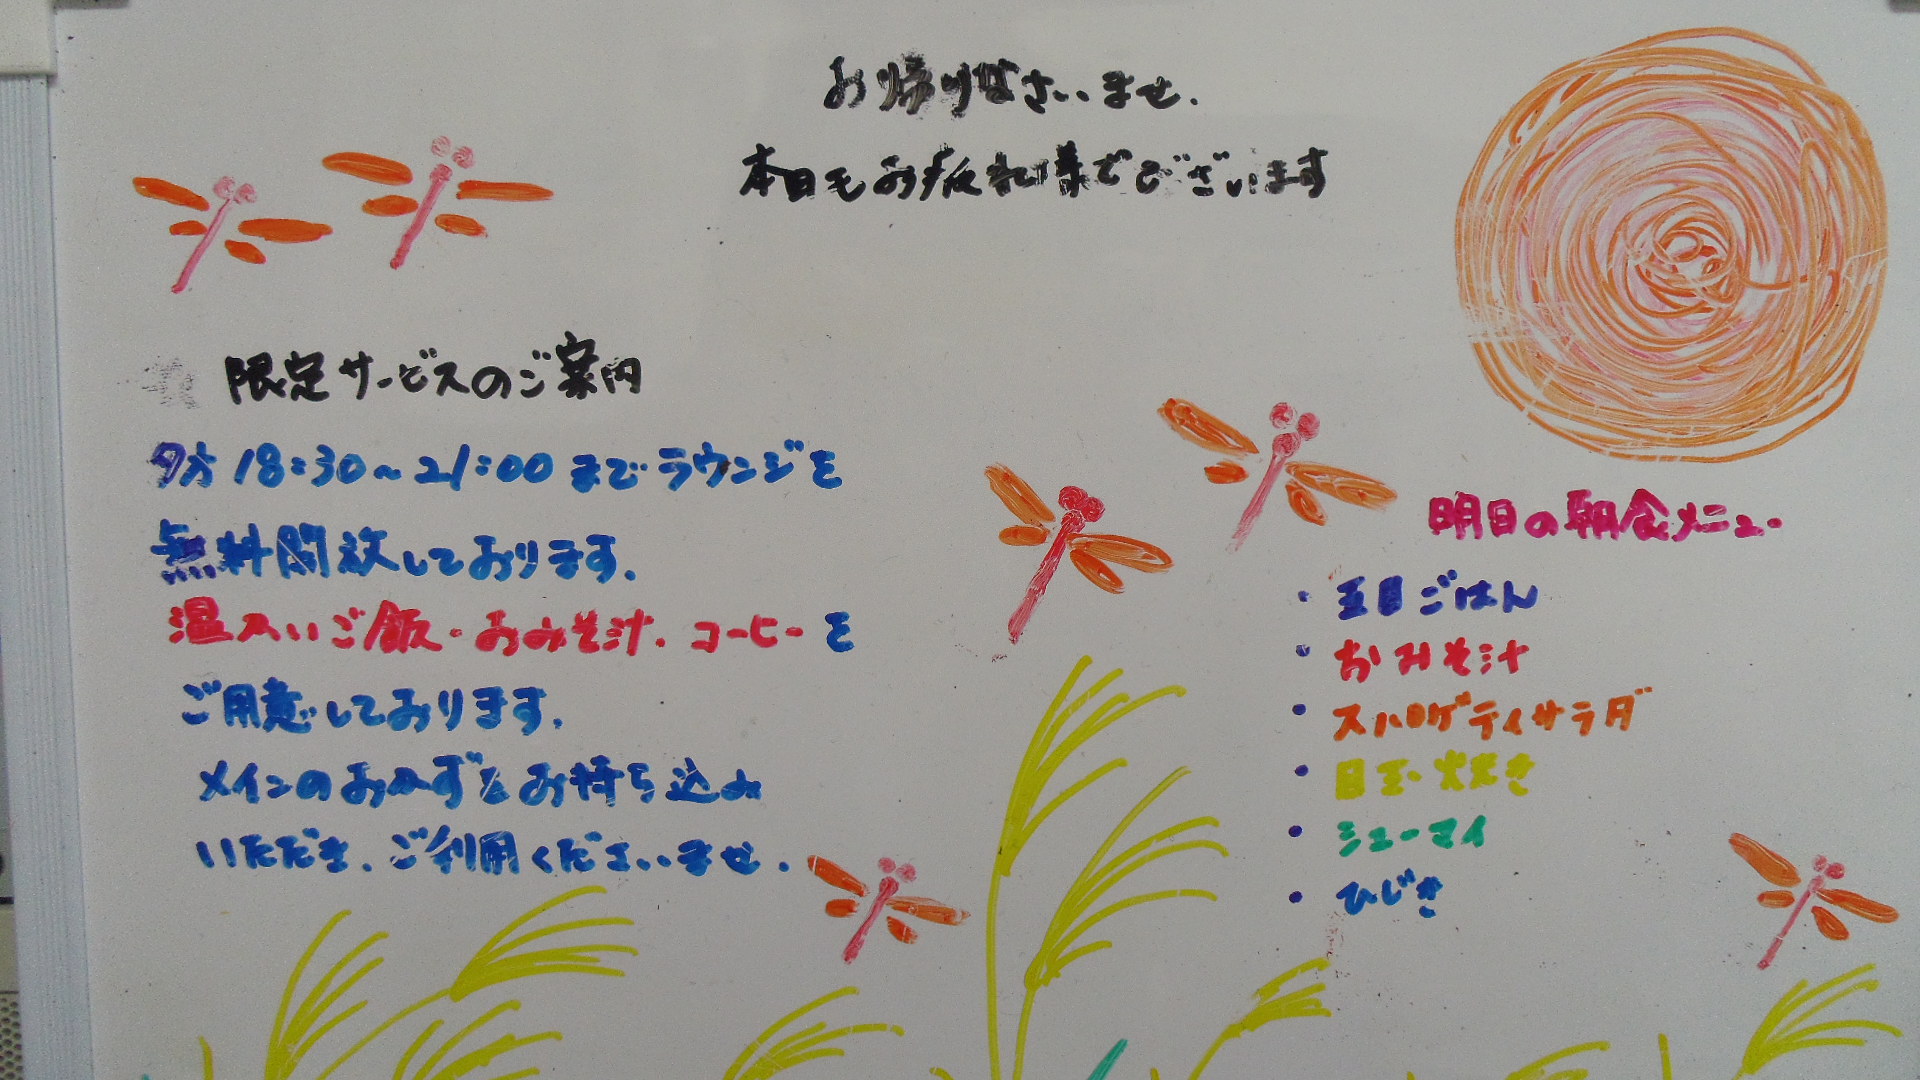 お帰りなさいませ.
本日もお疲れ様でございます
限定サービスのご案内
夕方 18:30~21:00 までラウンジを
無料開放しております.
温かいご飯・おみそ汁.コーヒーを
ご用意しております.
メインのおかずをお持ち込み
いただき.ご利用くださいませ.
明日の朝食メニュー
・五目ごはん
・おみそ汁
・スパゲティサラダ
・目玉焼き
・シューマイ
・ひじき